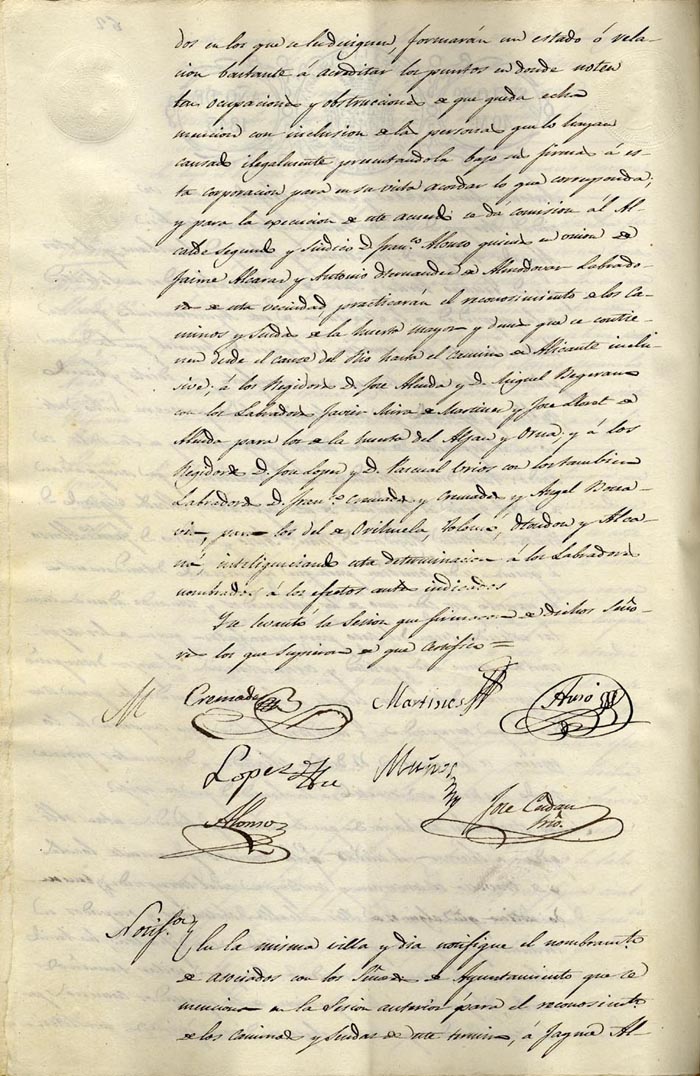 dos en los que se ludinguen, formarán un estado ó rela-
cion bastante á acreditar los puntos en donde noten
tan ocupaciones y obstrucciones de que queda echa
mencion con inclusion de la persona que lo hayan
causado ilegalmente presentandola bajo su firma á es-
ta corporacion para en su vista acordar lo que corresponda;
y para la execucion de este acuerdo se dá comision al Al-
calde segundo y Sindico D. Fran.co Alonso quienes en union de
Jaime Alcaraz y Antonio Hernandez de Almodovar Labrado-
res de esta vecindad, practicarán el reconosimiento de los Ca-
minos y Sendas de la huerta mayor y demas que se contie-
nen desde el cauce del Rio hasta el camino de Alicante inclu-
sive; á los Regidores D. Jose Almida y D. Miguel
con los Labradores Javier Mira de Martinez y Jose Lloret de
Almida para los de la huerta del y y á los
Regidores D. Jose Lopez y D. Pascual con los tambien
Labradores D. Fran.co Cremades y Cremades y Angel
para los del de Orihuela, y
inteligenciando esta determinacion á los Labradores
nombrados á los efectos antes indicados
Y se levantó la Sesion que firmaron de dichos Seño-
res los que supieron de que certifico =
M Cremades Martines
Lopez Muños
Alonso Jose
Srio.
Notif.on En la misma villa y dia notifique el nombram.to
de asociados con los Señores de Ayuntamiento que se
menciona en la Sesion anterior para el reconosim.to
de los Caminos y Sendas de este termino, á Jayme Al-